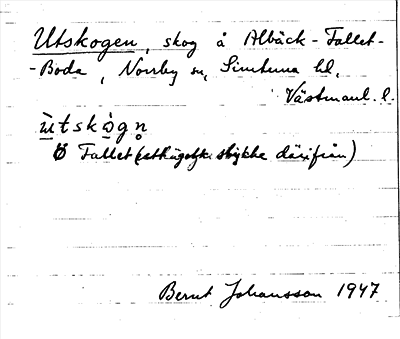 Utskogen, skog å Albäck-Tallet-
-Boda, Norrby sn, Simtuna hd,
Västmanl. l.
ùtskògn̥
Tallet ( stycke därifrån)
Bernt Johansson 1947